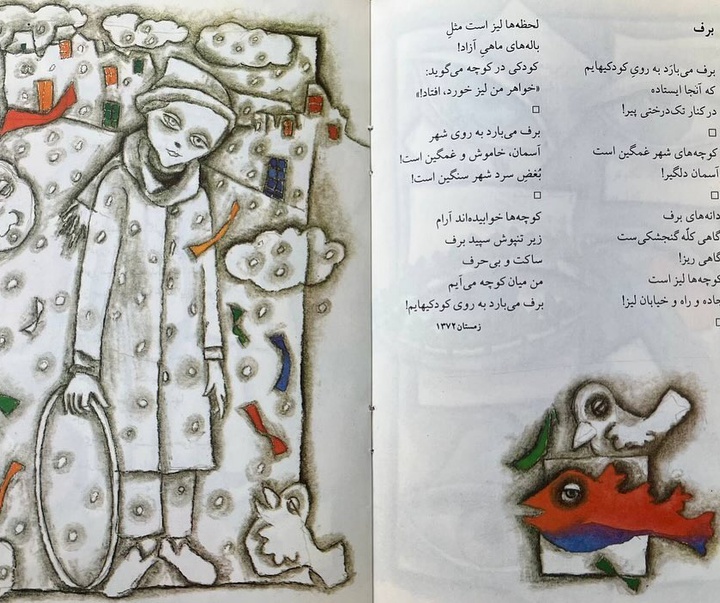 برف
برف می‌بارَد به روی کودکیهایم
که آنجا ایستاده
در کنار تک‌درختی پیر!
□
کوچه‌های شهر غمگین است
آسمان دلگیر!
□
دانه‌های برف
گاهی کلّه گنجشکی‌ست
گاهی ریز!
کوچه‌ها لیز است
جاده و راه و خیابان لیز!
□
لحظه‌ها لیز است مثلِ
باله‌های ماهیِ آزاد!
کودکی در کوچه می‌گوید:
«خواهر من لیز خورد، افتاد!»
□
برف می‌بارد به روی شهر
آسمان، خاموش و غمگین است!
بُغضِ سرد شهر سنگین است!
□
کوچه‌ها خوابیده‌اند آرام
زیر تنپوش سپید برف
ساکت و بی‌حرف
من میان کوچه می‌آیم
برف می‌بارد به روی کودکیهایم!
زمستان ۱۳۷۲